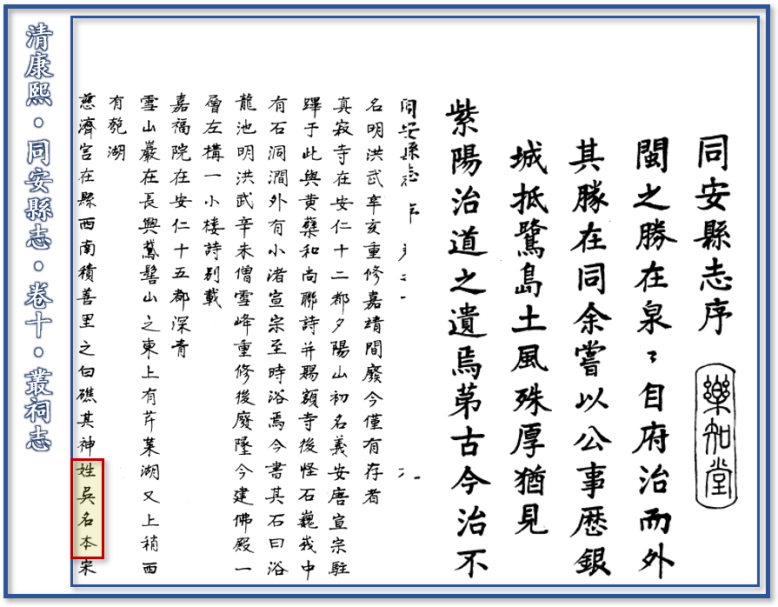 同安縣志序
樂知堂
閩之勝在泉〻自府治而外
其勝在同余嘗以公事歷銀
城抵鷺島土風殊厚猶見
紫陽治道之遺焉苐古今治不
同安縣志
名明洪武辛亥重修嘉靖間廢今僅有存者
真寂寺在安仁十二都夕陽山初名義安唐宣宗駐
蹕于此與黃蘗和尚聯詩并賜額寺後怪石巍峩中
有石洞澗外有小渚宣宗至時浴焉今書其石曰浴
龍池明洪武辛未僧雪峰重修後廢隆今建佛殿一
層左構一小樓詩別載
嘉福院在安仁十五都深青
雪山巖在長興鵞髻山之東上有芹菜湖又上稍西
有匏湖
慈濟宮在縣西南積善里之白礁其神姓吳名本宋
清康熙•同安縣志•卷十•叢祠志